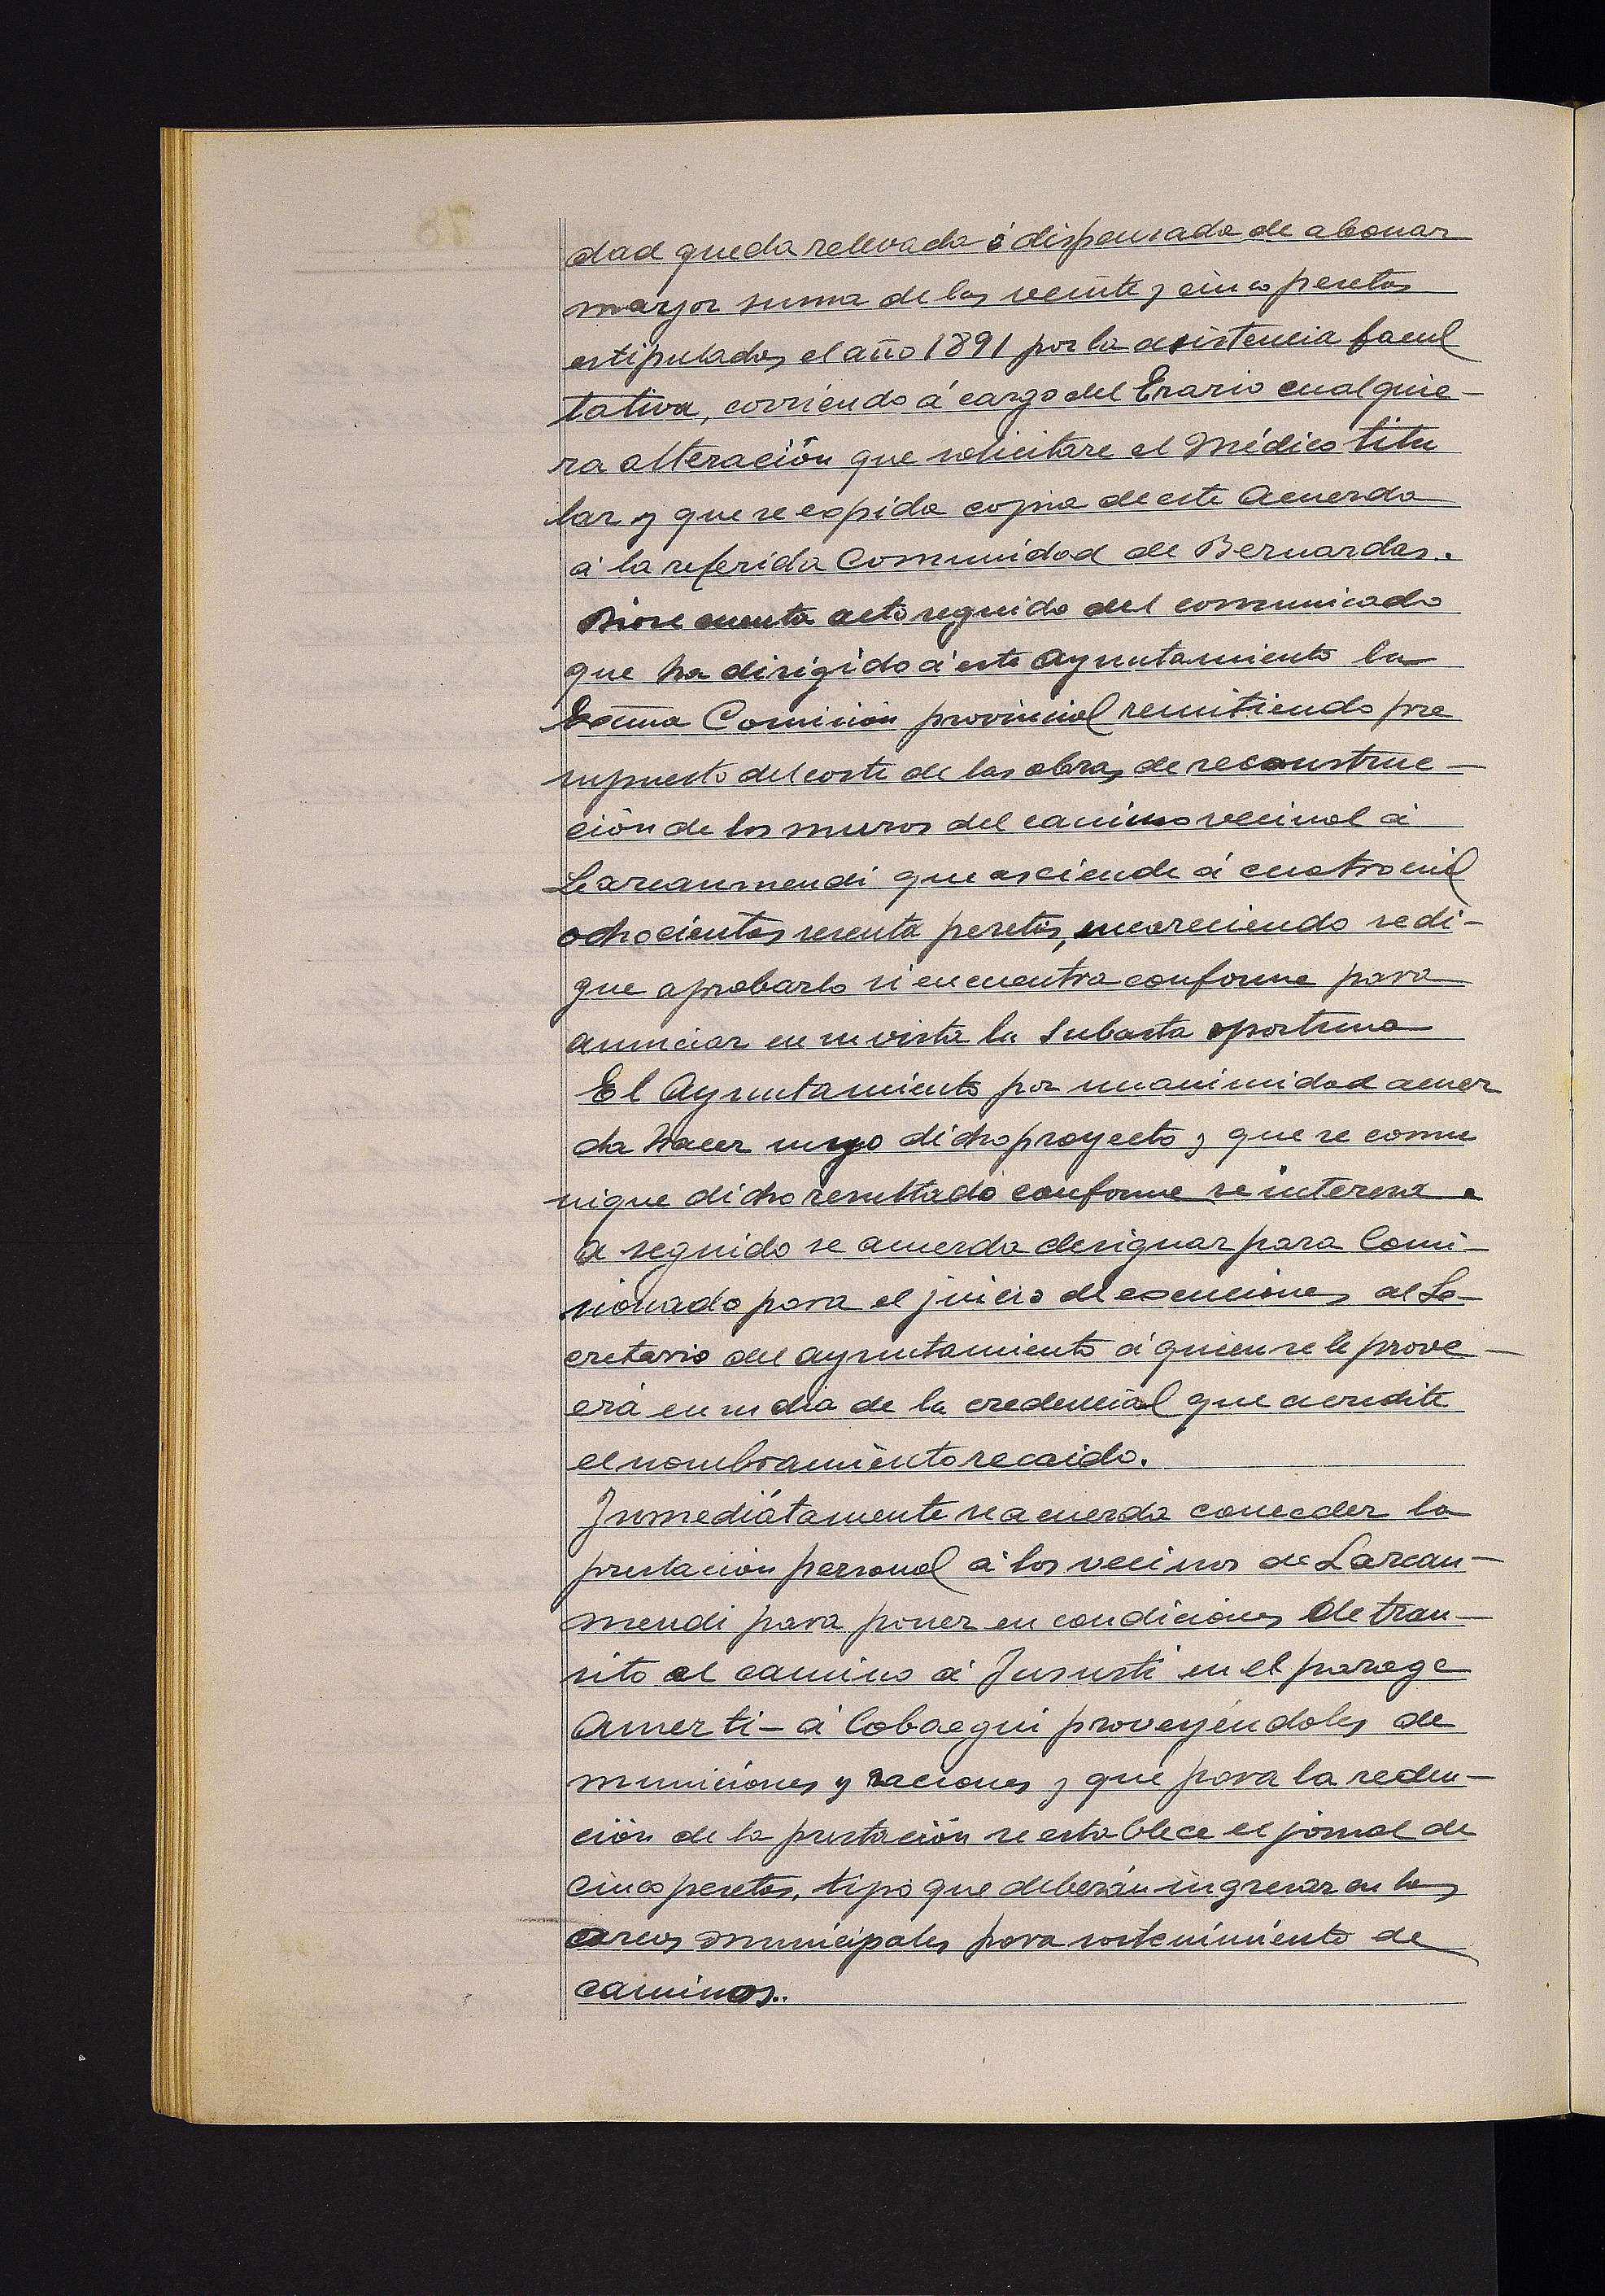 dad queda relevada ó dispensada de abonar
mayor suma de las veinte y cinco pesetas
estipulados el año 1891 por la asistencia facul
tativa, corriendo á cargo del Erario cualquie-
ra alteración que solicitare el Médico titu
lar y que se espida copia de este Acuerdo
á la referida Comunidad de Bernardas.
Diose cuenta acto seguido del comunicado
que ha dirigido á este Ayuntamiento la
Excma Comision provincial remitiendo pre
supuesto del coste de las obras de reconstruc-
ción de los muros del camino vecinal á
Larcanmendi que asciende á cuatro mil
ochocientas sesenta pesetas, encareciendo se di-
gne aprobarlo si encuentra conforme para
anunciar en su vista la Subasta oportuna
El Ayuntamiento por unanimidad acuer
da hacer suyo dicho proyecto y que se comu
nique dicho resultado conforme se interesa.
A seguido se acuerda designar para Comi-
sionado para el juicio de exenciones al Se-
cretario del ayuntamiento á quien se le prove-
erá en su dia de la credencial que acredite
el nombramiento recaido.
Inmediátamente se acuerda conceder la
prestacion personal á los vecinos de Larcan-
mendi para poner en condiciones de tran-
sito el camino á Jususti en el parage
Amerti-á Cobaegui proveyéndoles de
municiones y raciones y que para la reden-
ción de la prestación se establece el jornal de
cinco pesetas, tipo que deberán ingresar en las
arcas municipales para sostenimiento de
caminos..